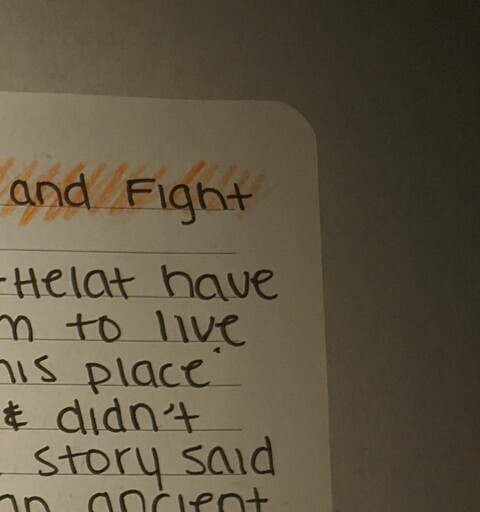 and Fight
-Helat have
m to live
his place
& didn't
story said
an ancient